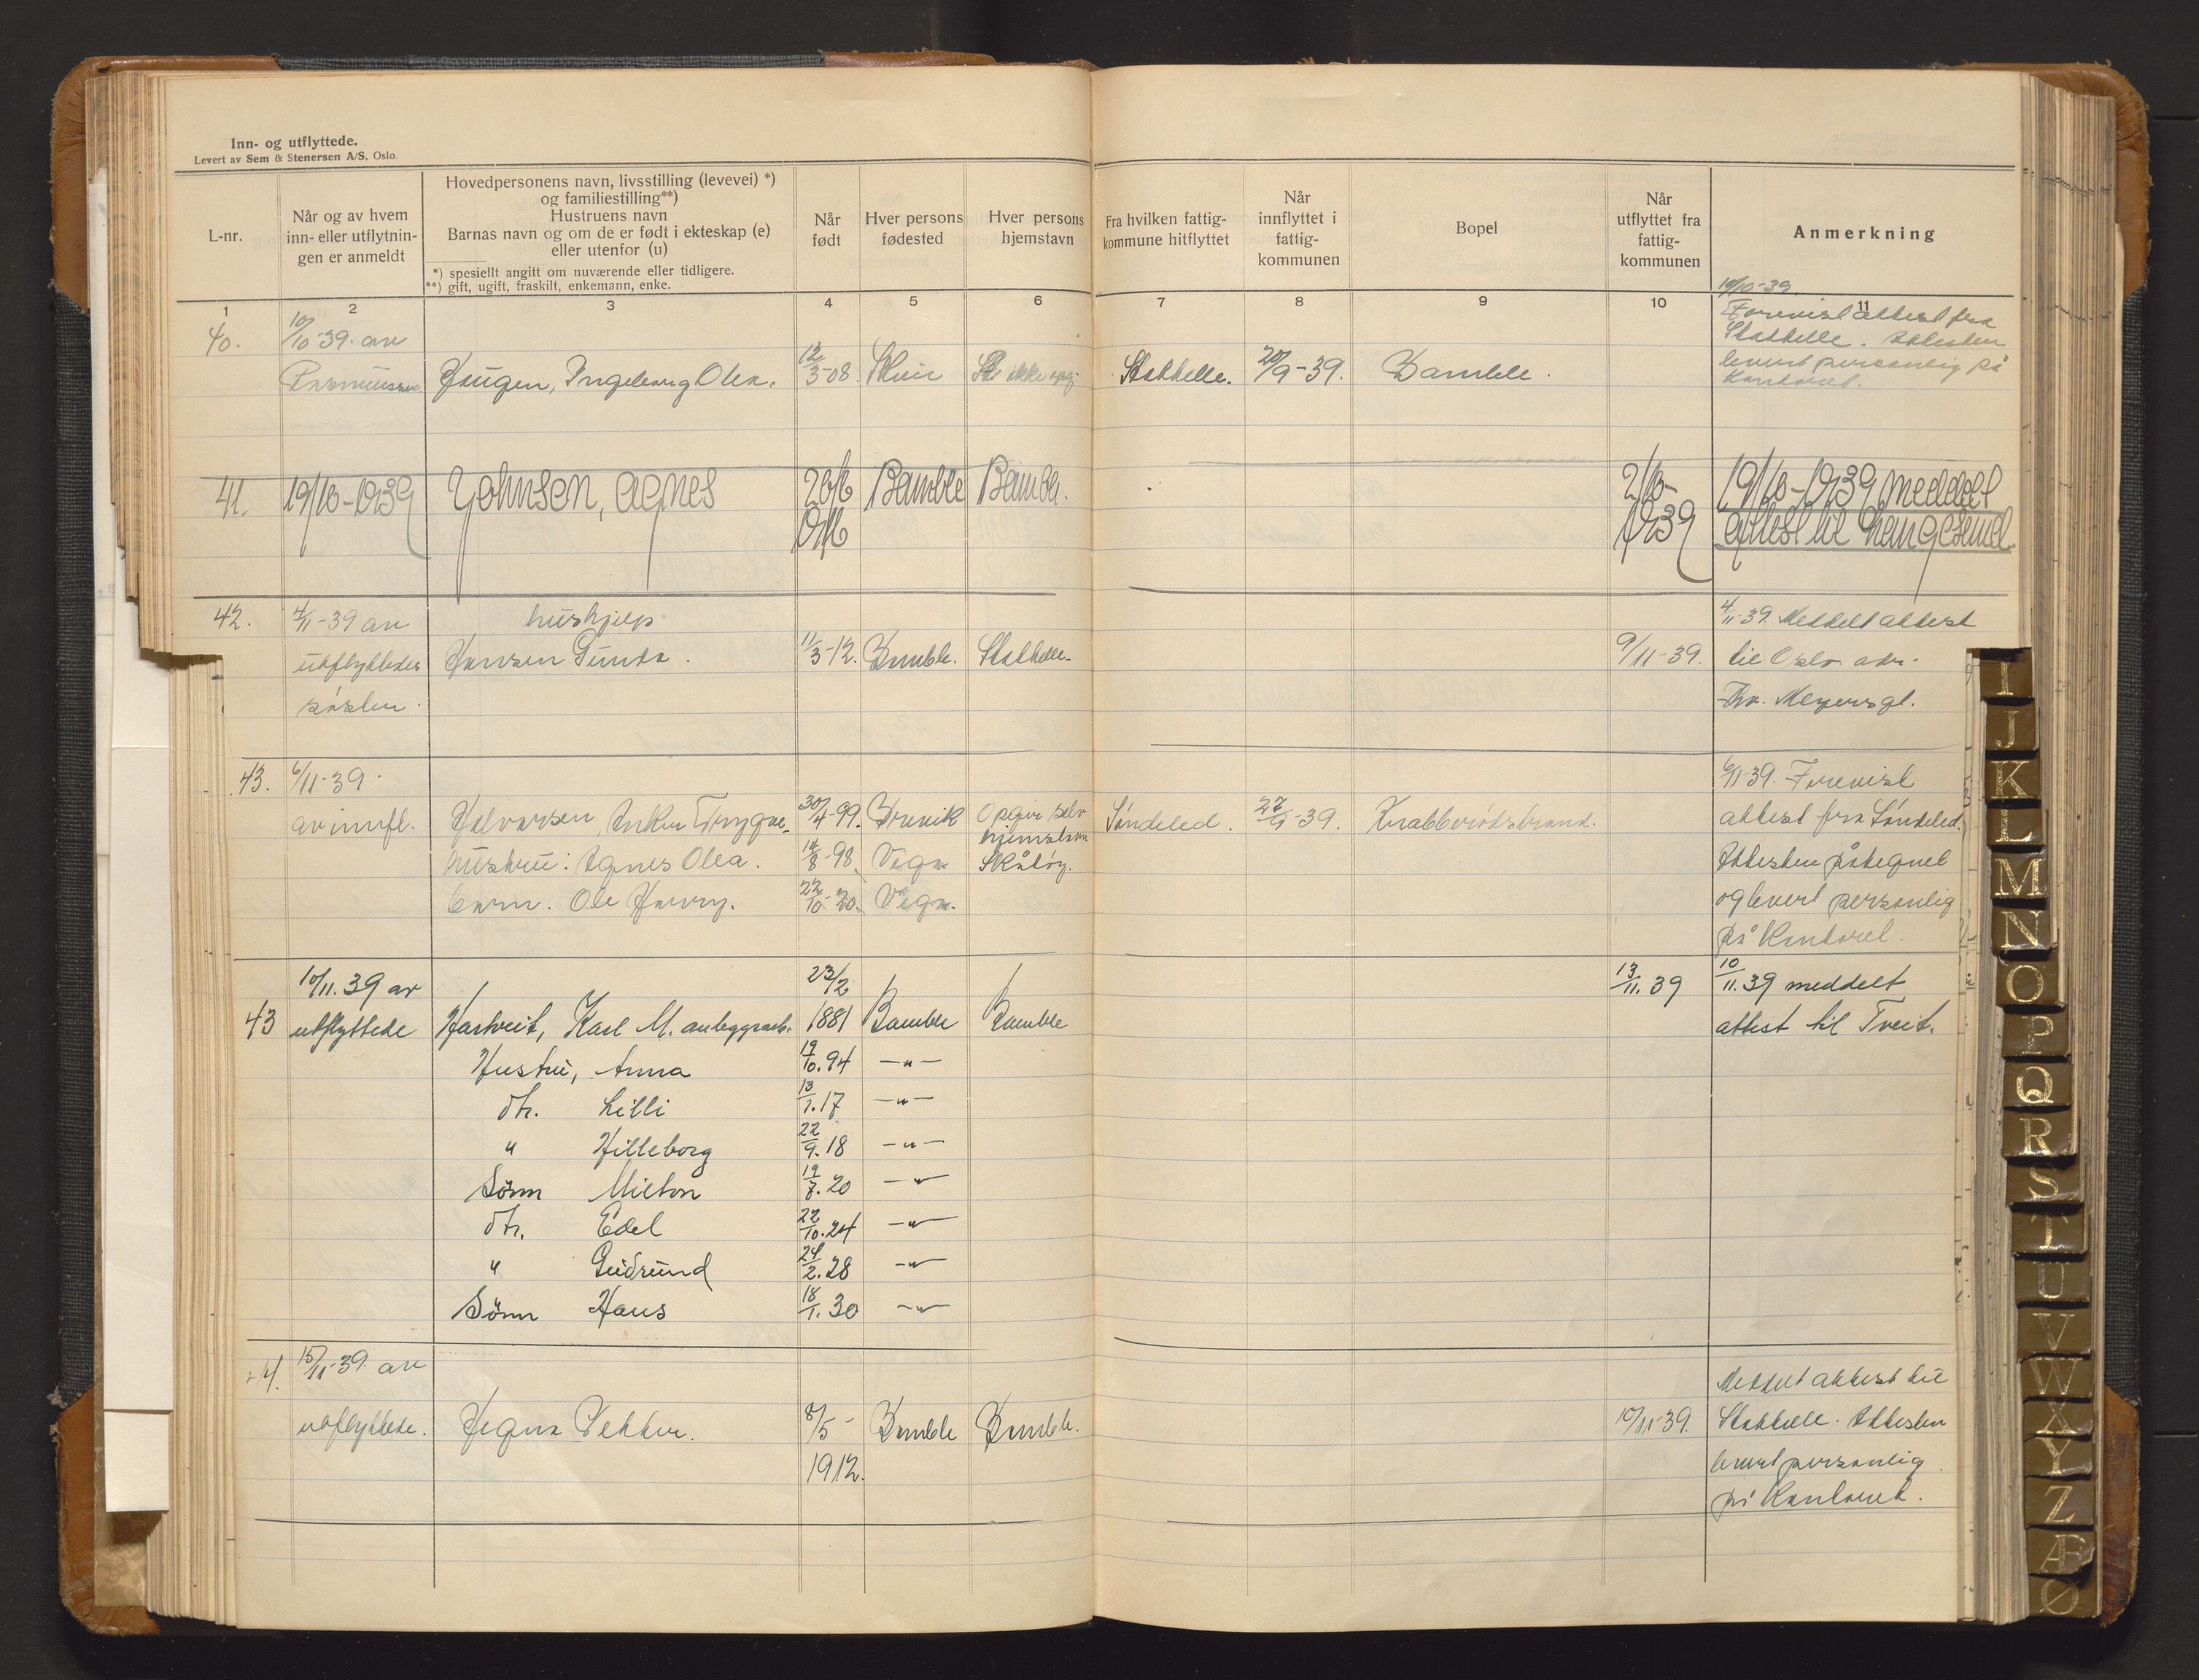 Inn- og utflyttede.
Levert av Sem & Stenersen A/S, Oslo.
L-nr.
Når og av hvem
inn- eller utflytnin-
gen er anmeldt
Hovedpersonens navn, livsstilling (levevei) *)
og familiestilling**)
Hustruens navn
Barnas navn og om de er født i ekteskap (e)
eller utenfor (u)
*) spesiellt angitt om nuværende eller tidligere.
**) gift, ugift, fraskilt, enkemann, enke.
Når
født
Hver persons
fødested
Hver persons
hjemstavn
Fra hvilken fattig-
kommune hitflyttet
Når
innflyttet i
fattig-
kommunen
Bopel
Når
utflyttet fra
fattig-
kommunen
Anmerkning
1 2 3 4 5 6 7 8 9 10 11
40. 10/10-39. av
Rasmussen Haugen, Ingeborg Olea. 12/3-08. Skien ikke opg. Stathelle. 20/9-39. Bamble.
10/10-39.
Forevist attest fra
Stathelle. Attesten
levert personlig på
Kontoret.
41. 19/10-1939 Johnsen, Agnes Bamble Bamble. 2/10-1939
19/10-1939 meddelt
attest til Langesund
42. 4/11-39 av
utflyttedes
søster.
hushjelp
Hansen Gunda. 11/3-12. Bamble. Stathelle. 9/11-39.
4/11-39. Meddelt attest
til Oslo adr.
Thv. Meyersgt.
43. 6/11-39.
av innfl.
Halvorsen, Anker Trygve 30/4-99. Brevik Opgir selv hjemstavn Skåtøy. Søndeled. 27/9-39. Krabberødstrand.
hustru: Agnes Olea. 14/8-98.
barn. Ole Harry. 22/10-20.
6/11-39. Forevist
attest fra Søndeled.
Attesten påtegnet
og levert personlig
på Kontoret.
43 10/11.39 av
utflyttede
Hartveit, Karl M. anleggsarb. 23/2 1881 Bamble Bamble 13/11.39
10/11.39 meddelt
attest til Tveit.
Hustru, Anna 19/10.94 -"-
dtr. Lilli 13/1.17 -"-
" Hilleborg 22/9.18 -"-
Sønn Milton 19/7.20 -"-
dtr. Edel 22/10.24 -"-
" Gudrund 24/2.28 -"-
Sønn Hans 18/1.30 -"-
44. 15/11-39. av
utflyttede. Hegna Petter. 8/5-1912. Bamble Bamble. 10/11-39.
Meddelt attest til
Stathelle. Attesten
levert personlig
på Kontoret.
I
J
K
L
M
N
O
P
Q
R
S
T
U
V
W
X
Y
Z
Æ
Ø